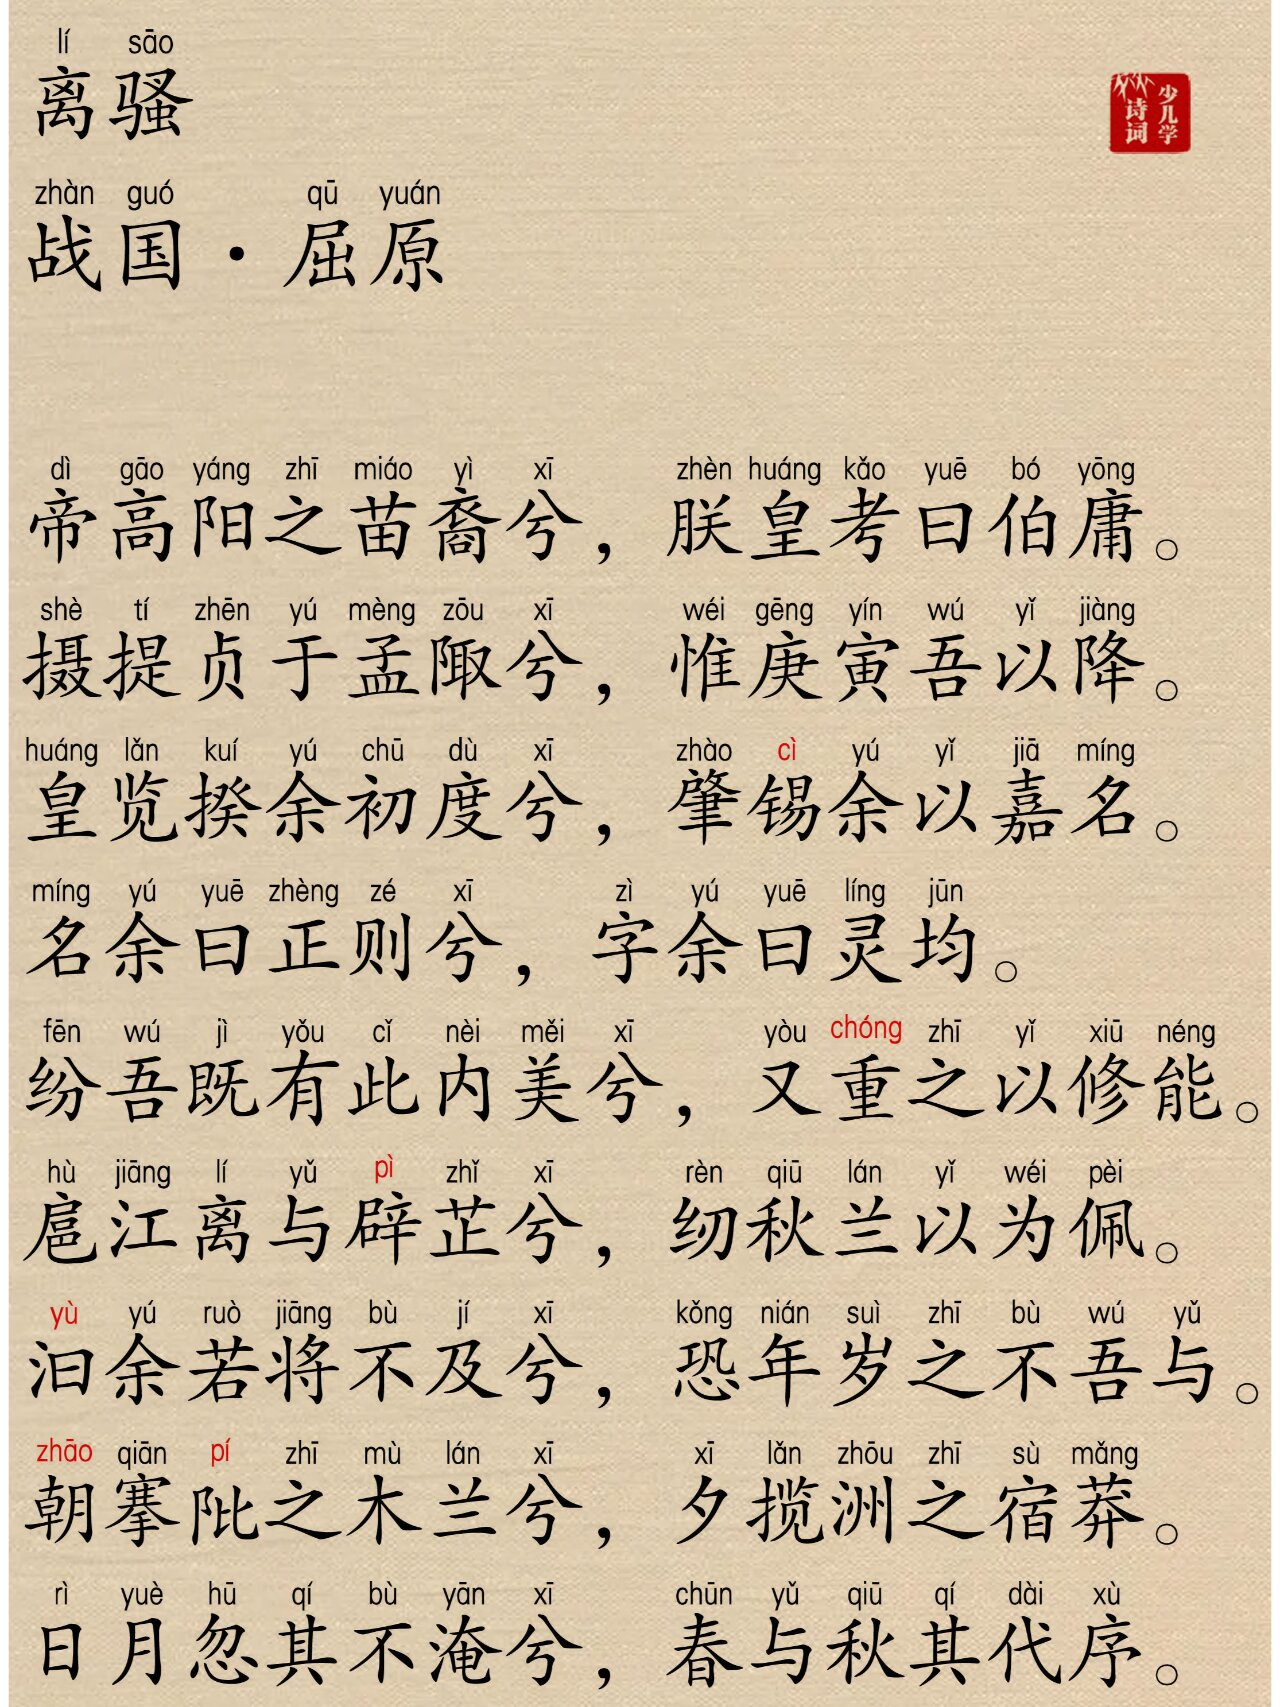 lí sāo
离骚
少儿学
诗词
zhàn guó qū yuán
战国·屈原
dì gāo yáng zhī miáo yì xī zhèn huáng kǎo yuē bó yōng
帝高阳之苗裔兮，朕皇考曰伯庸。
shè tí zhēn yú mèng zōu xī wéi gēng yín wú yǐ jiàng
摄提贞于孟陬兮，惟庚寅吾以降。
huáng lǎn kuí yú chū dù xī zhào cì yú yǐ jiā míng
皇览揆余初度兮，肇锡余以嘉名。
míng yú yuē zhèng zé xī zì yú yuē líng jūn
名余曰正则兮，字余曰灵均。
fēn wú jì yǒu cǐ nèi měi xī yòu chóng zhī yǐ xiū néng
纷吾既有此内美兮，又重之以修能。
hù jiāng lí yǔ pì zhǐ xī rèn qiū lán yǐ wéi pèi
扈江离与辟芷兮，纫秋兰以为佩。
yù yú ruò jiāng bù jí xī kǒng nián suì zhī bù wú yǔ
汩余若将不及兮，恐年岁之不吾与。
zhāo qiān pí zhī mù lán xī xī lǎn zhōu zhī sù mǎng
朝搴阰之木兰兮，夕揽洲之宿莽。
rì yuè hū qí bù yān xī chūn yǔ qiū qí dài xù
日月忽其不淹兮，春与秋其代序。